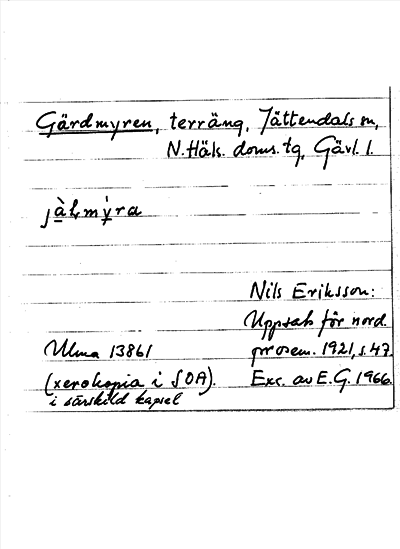 Gärdmyren, terräng, Jättendals sn,
N. Häls. doms. tg, Gävl. l.
Nils Eriksson:
Uppsats för nord.
Ulma 13861
prosem. 1921, s. 47.
(xerokopia i SOA).
Exc. av E.G. 1966.
i särskild kapsel